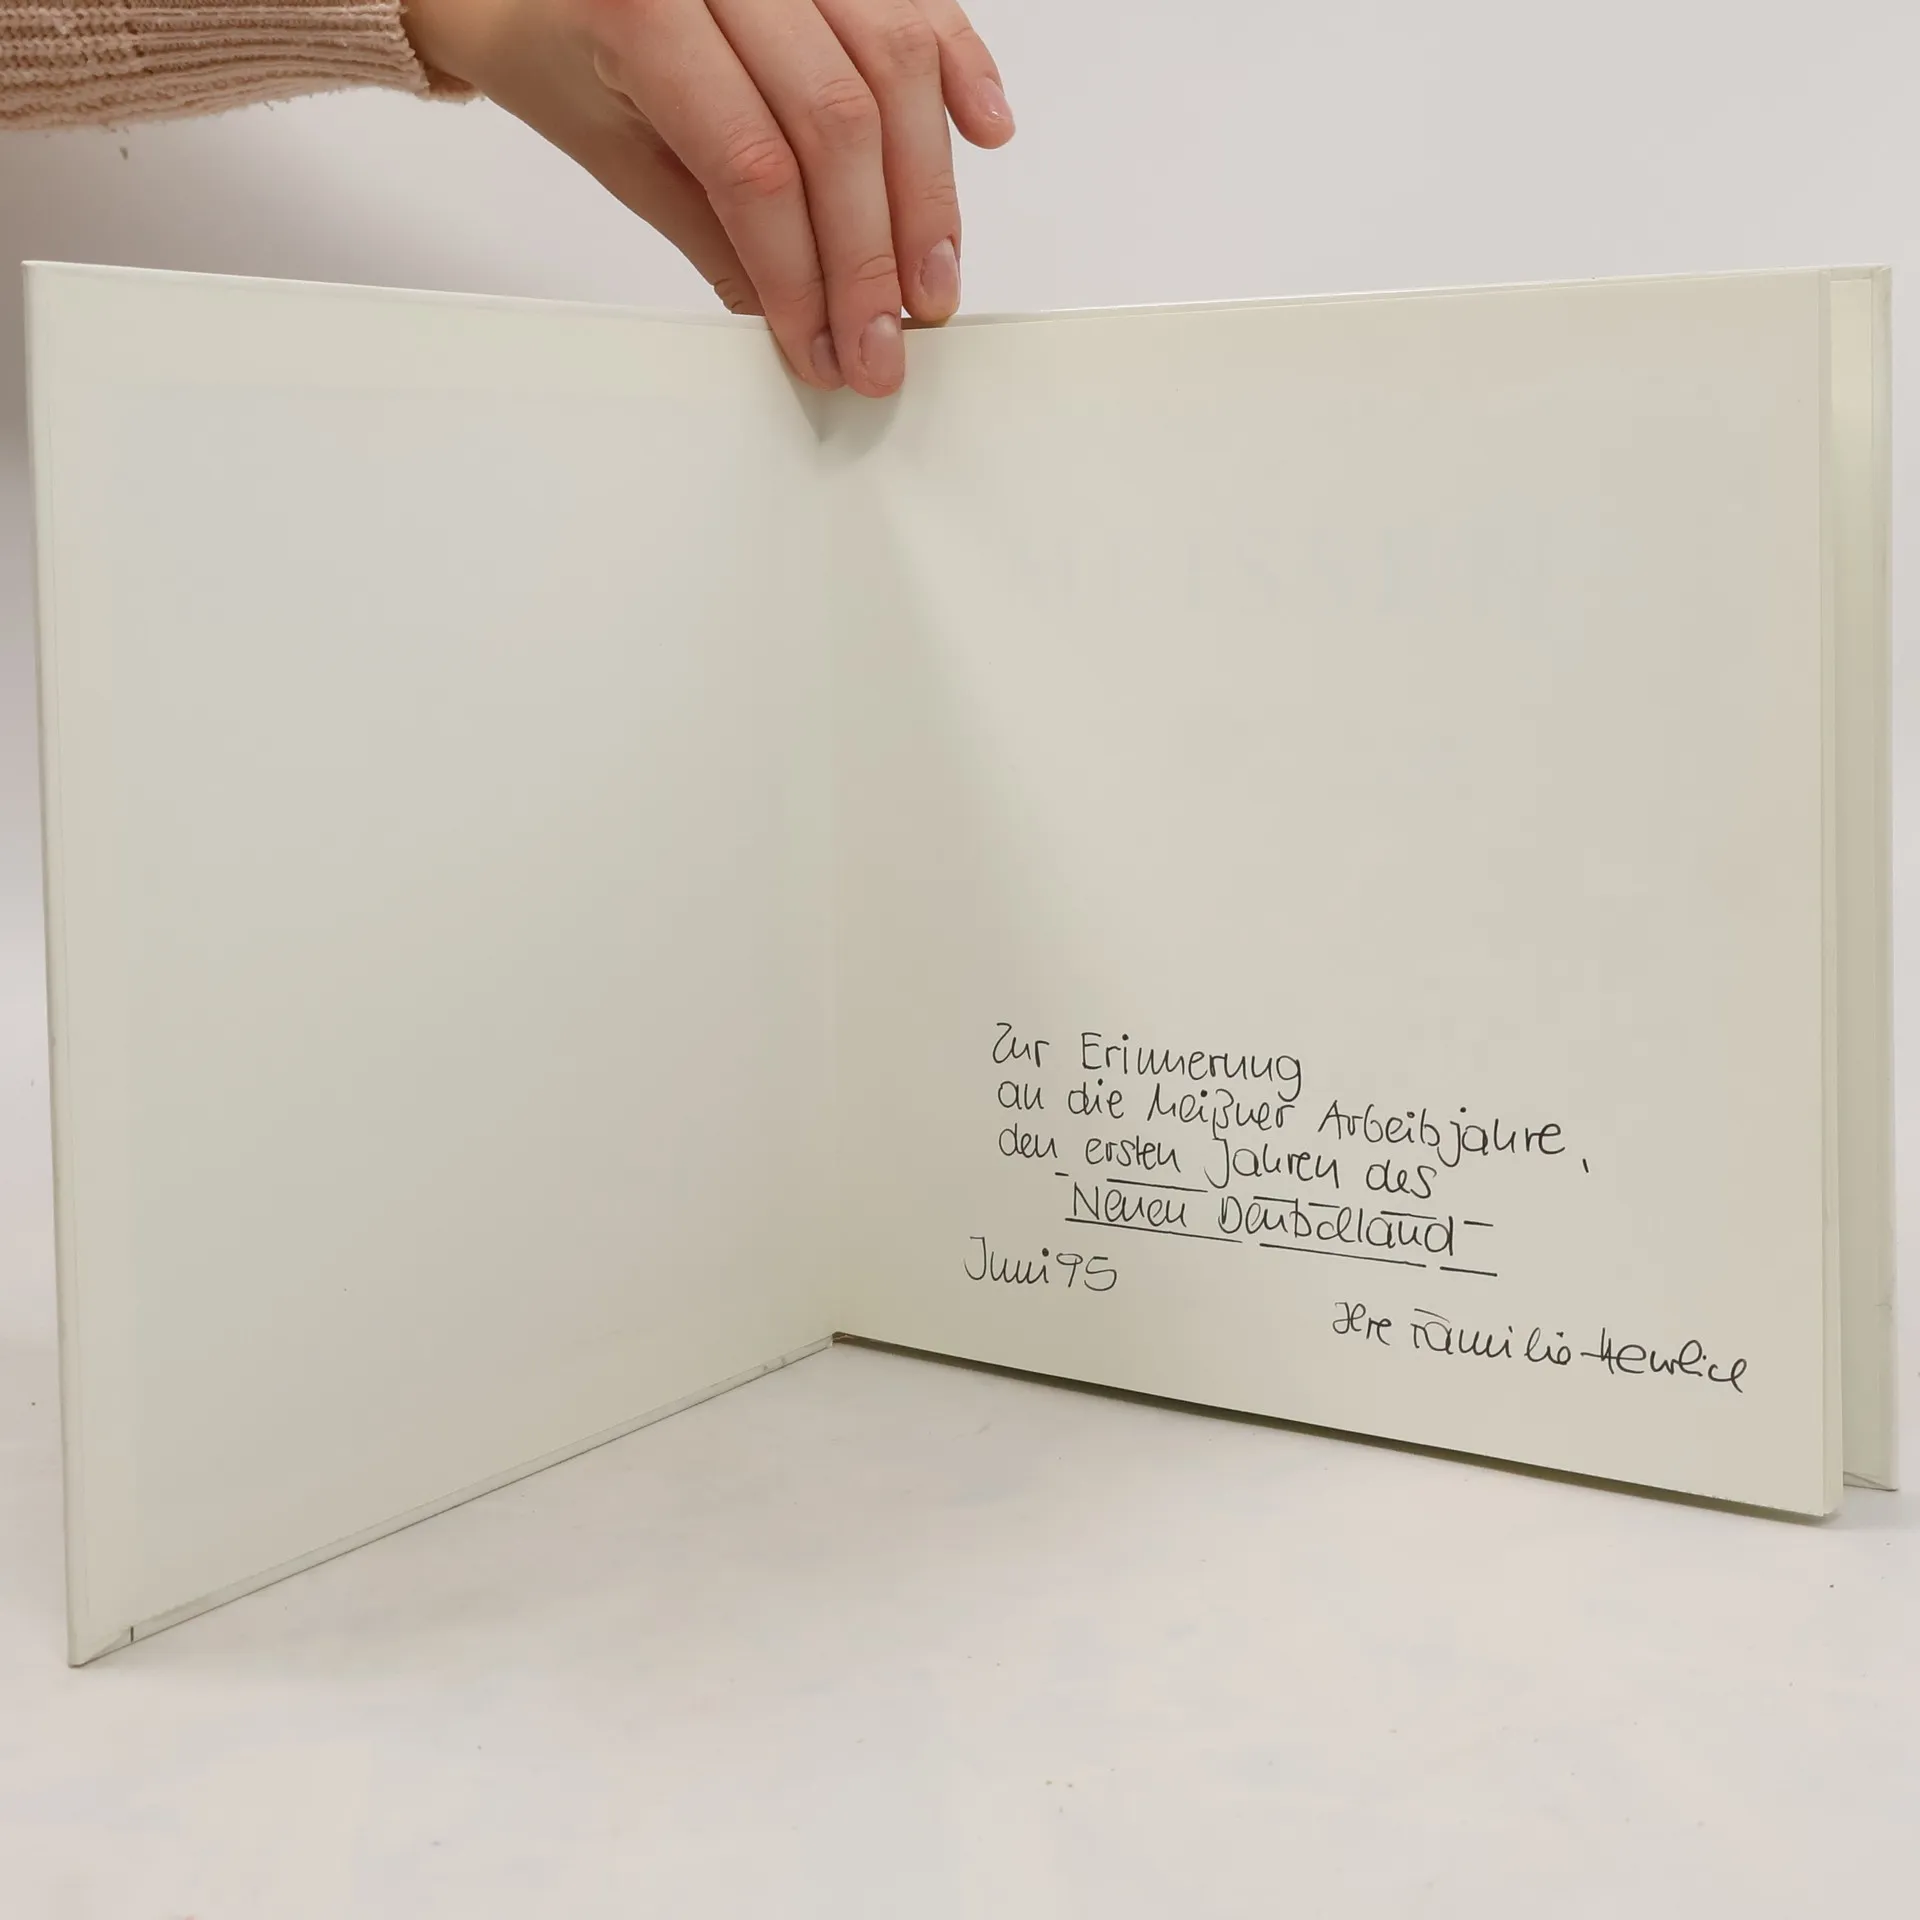 Zur Erinnerung
an die Meißner Arbeitsjahre,
den ersten Jahren des
Neuen Deutschland
Juni 95
Ihre Familie